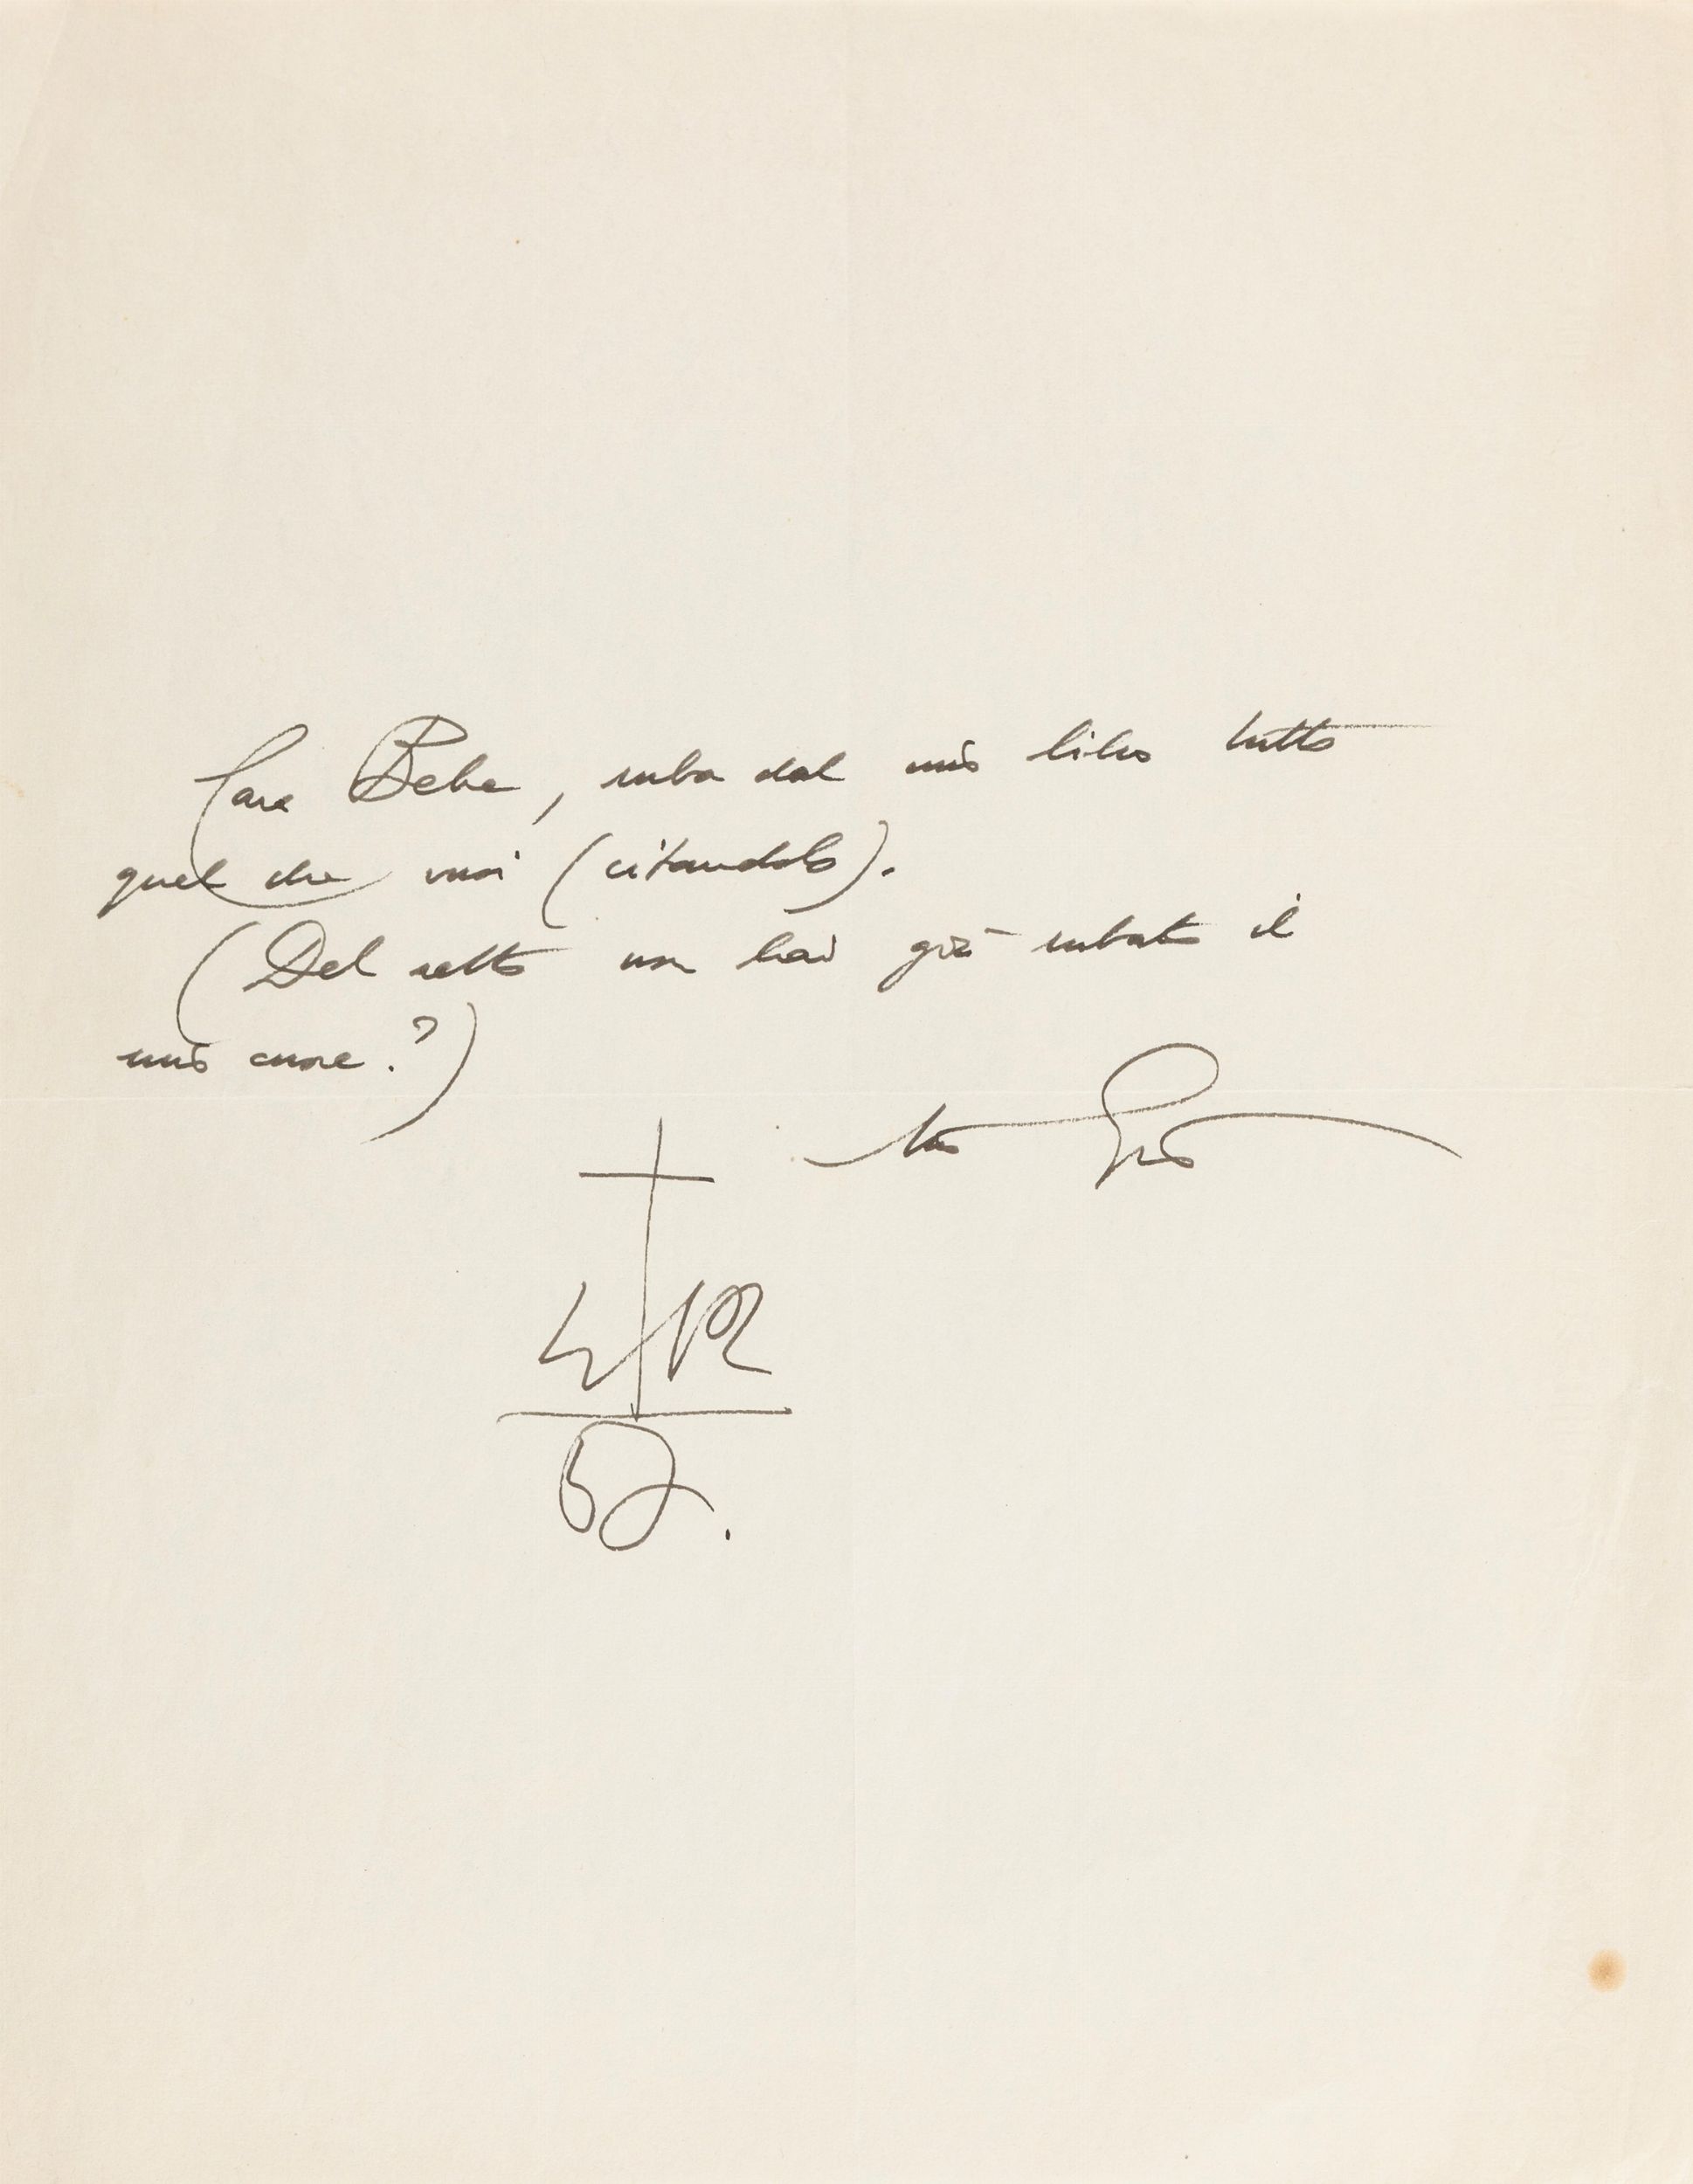 Cara Bebe, ruba dal mio libro tutto
quel che vuoi (citandolo).
(Del resto non hai già rubato il
mio cuore?)
tuo Gio